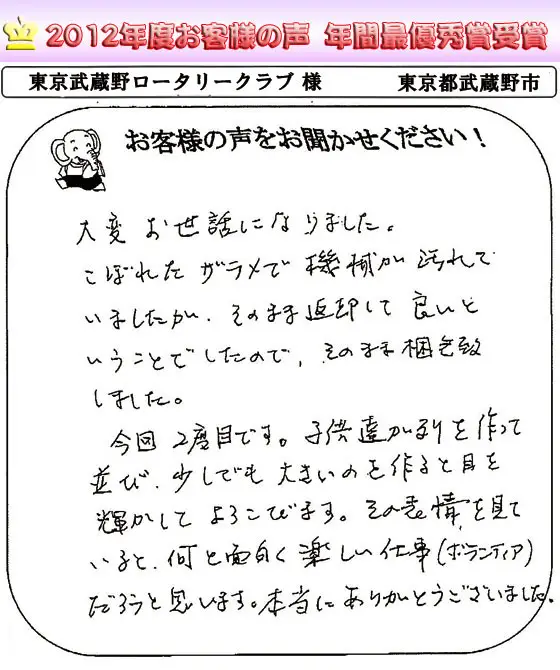 2012年度お客様の声 年間最優秀賞受賞
東京武蔵野ロータリークラブ 様 東京都武蔵野市
お客様の声をお聞かせください!
大変 お世話になりました。
こぼれた ザラメで 機械が 汚れて
いましたが、そのまま返却して 良いと
いうことでしたので、そのまま梱包致
しました。
今回 2度目です。子供達が
りを作って
並び、少しでも 大きいのを作ると目を
輝かして よろこびます。その表情を見て
いると、何と面白く 楽しい仕事(ボランティア)
だろうと思います。本当にありがとうございました。